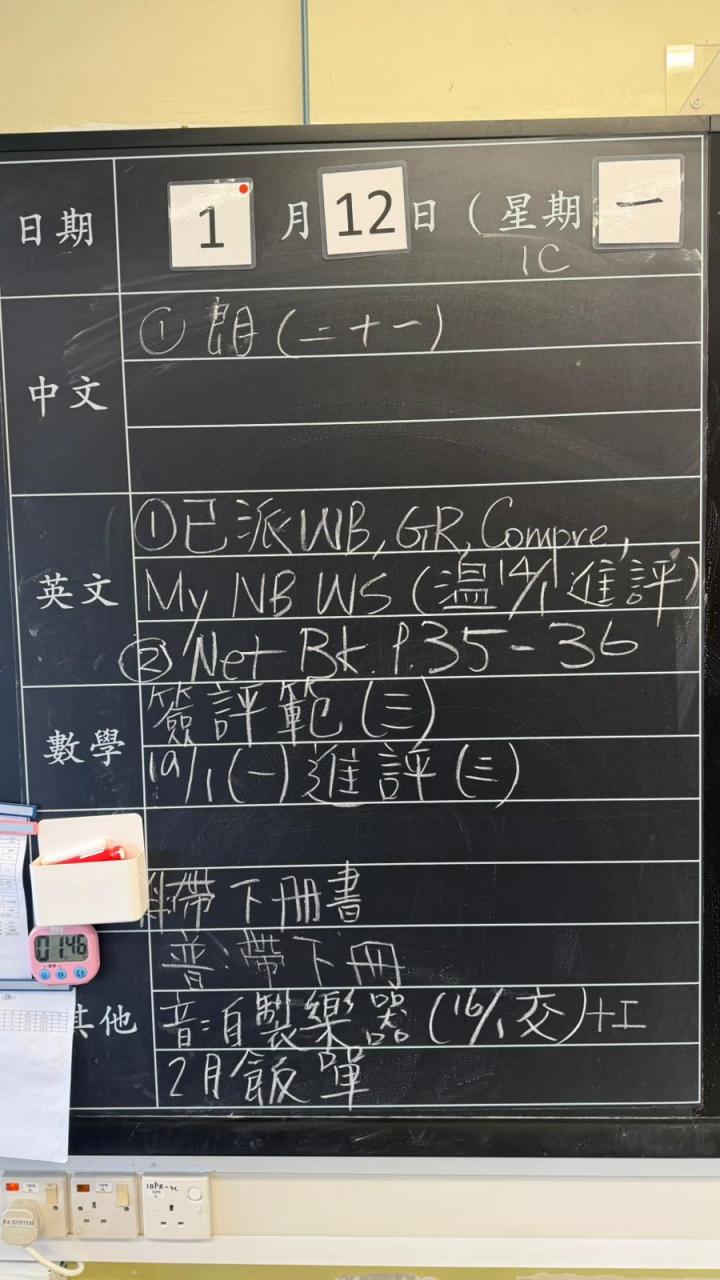 日期 1 月 12 日 ( 星期 一
1C
中文
① 朗 (二十一)
英文
① 已派 WB, GR, Compre,
My NB WS (温 14/1 進評)
② Net Bk. P.35-36
數學
簽評範 (三)
19/1 (一) 進評 (三)
帶下冊書
其他
普:帶下冊
音:自製樂器 (16/1 交) +工
2月飯單
01:46
PA SYSTEM